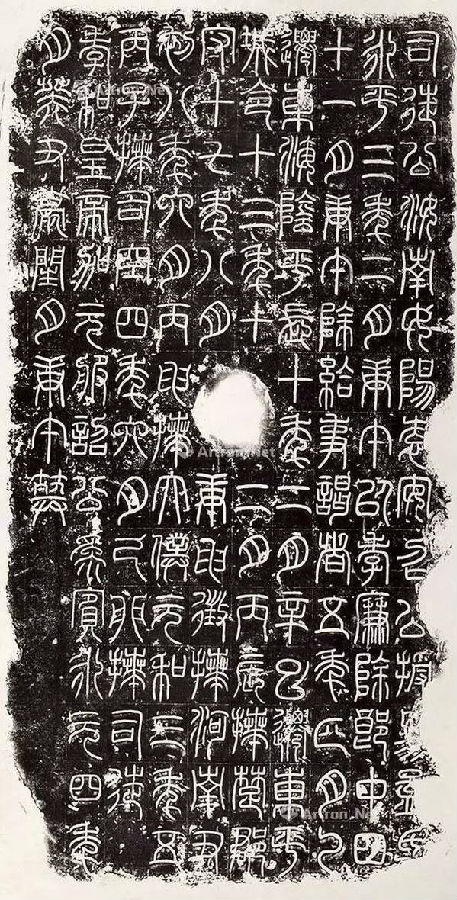 司徒公汝南女陽袁安召公授易孟氏
永平三年二月庚午以孝廉除郎中四
十一月庚午除給事謁者五年正月乙
遷東海陰平長十年二月辛巳遷東平
城令十三年十二月丙辰拜楚郡
守十七年八月庚申徵拜河南尹
初八年六月丙申拜太僕元和三年五
丙子拜司空四年六月己卯拜司徒
孝和皇帝加元服詔公為賓永元四年
月癸丑薨閏月庚午葬
Artron.Net
Artron.Net
Artron.Net
Artron.Net